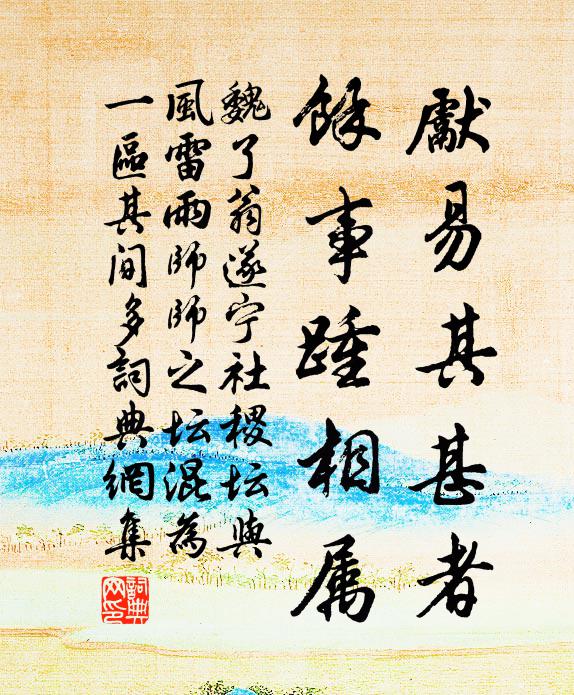 獻易其甚者
餘事踵相属
魏了翁遂宁社稷坛與
風雷雨師師之坛混為
一區其间多詞典網集